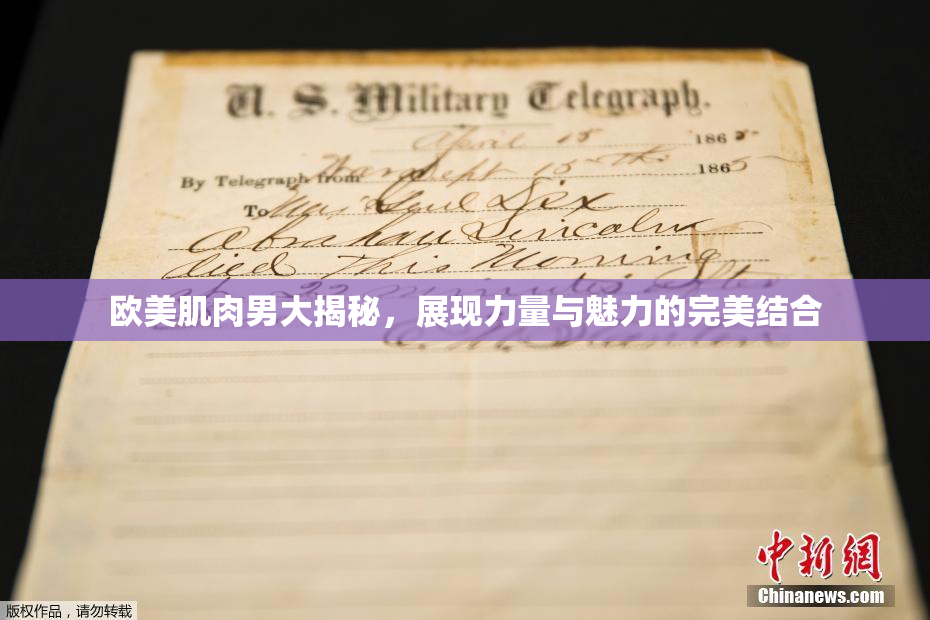 U. S. Military Telegraph.
April 15 1865
By Telegraph from War Dept 15th 1865
To Maj Genl Dix
Abraham Lincoln
died This Morning
at 22 minutes after
欧美肌肉男大揭秘，展现力量与魅力的完美结合
E. M. Stanton
中新网
Chinanews.com
版权作品，请勿转载